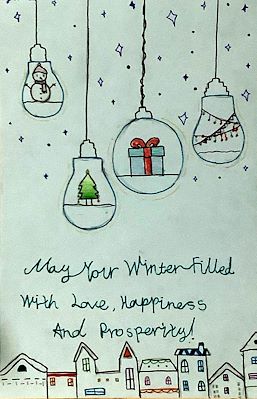 May Your Winter Filled
With Love, Happiness
And Prosperity!